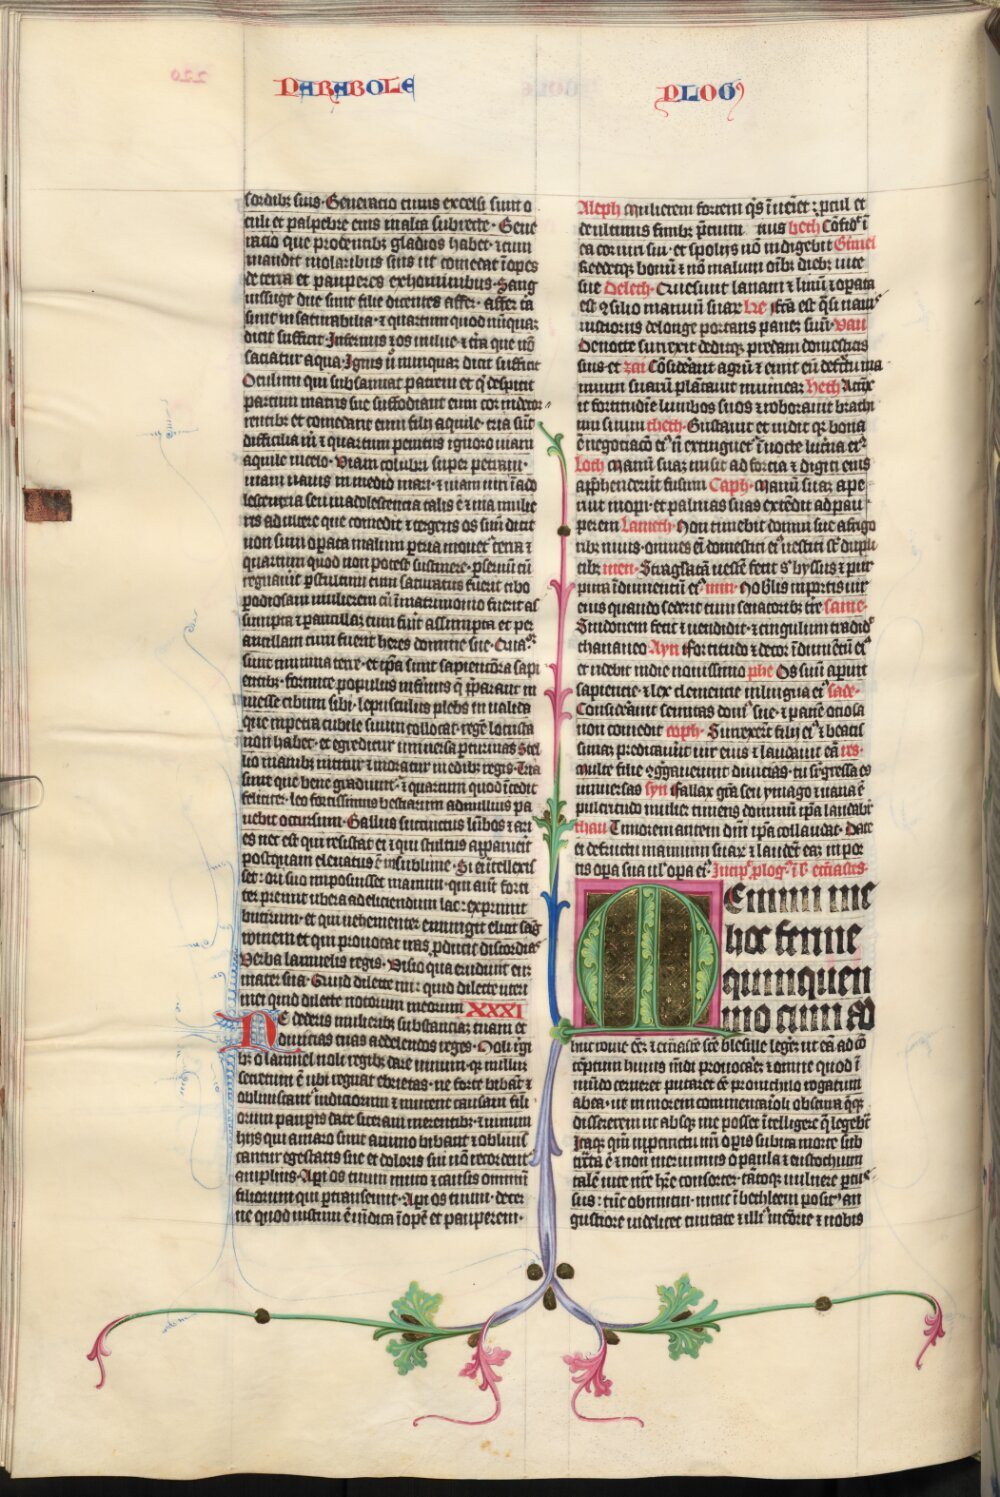 PARABOLE
PLOGꝰ
sordibꝫ suis · Generatio cuius excelsi sunt o
culi et palpebre eius in alta subrecte · Gene
racio que pro dentibꝫ gladios habet · ⁊ com
mandit molaribus suis ut comedat īopes
de terra et pauperes ex hominibus · Sang
uissuge due sunt filie dicentes affer · affer t̄a
sunt in saturabilia · ⁊ quartum quod nūquaꝫ
dicit sufficit · Infernus ⁊ os uulue ⁊ tr̄a que nō
saciatur aqua · Ignis ū nunquaꝫ dicit sufficit
Oculum qui subsannat patrem et q̄ despicit
partum matris sue suffodiant eum cor
rentibꝫ et comedant eum filij aquile · tria sūt
difficilia m̄ ⁊ quartum penitus ignoro uiam
aquile in celo · Viam colubri super petram ·
uiam nauis in medio mari · ⁊ uiam uiri ī ado
lescentia talis ē ⁊ uia mulie
ris adultere que comedit ⁊ tergens os suū dicit
non sum opata malum p tria mouet᷑ terra ⁊
quartum quod non potest sustinere · p seruū cū
regnauit p stultum cum saturatus fuerit cibo
p odiosam mulierem cū ī matrimonio fuerit as
sumpta ⁊ p ancillaꝫ cum fuit assumpta et per
ancillam cum fuerit heres domine sue ·
sunt minima terre · et ip̄a sunt sapiencōra sapi
entibꝫ · formice populus infirmus q̄ p̄parant in
messe cibum sibi · lepusculus plebs in ualida
que in petra cubile suum collocat · regē locusta
non habet · et egreditur uniuersa p turmas Stel
lio manibꝫ nititur ⁊ moratur in edibꝫ regis · Tria
sunt que bene gradiunt᷑ · ⁊ quartum quod īcedit
feliciter · leo fortissimus bestiarum ad nullius pa
uebit occursum · Gallus succinctus lūbos ⁊ ari
es nec est rex qui resistat ei ⁊ qui stultus apparuit
postquam eleuatus ē in sublime · Si em̄ intellexis
set : ori suo imposuisset manum · qui aut̄ forti
ter premit ubera ad eliciendum lac : exprimit
butirum · et qui uehementer emungit elicit sāg
winem et qui prouocat iras producit discordias
Verba lamuelis regis · Visio qua erudiuit eū
mater sua · Quid dilecte mi : quid dilecte uteri
mei quid dilecte uotorum meorum XXXI
Ne dederis mulieribꝫ substanciaꝫ tuam et
diuicias tuas ad delendos reges · Noli rḡi
bꝫ o lamuel noli regibꝫ dare uinum · qꝛ nullum
secretum ē ubi regnat ebrietas · ne forte bibāt ⁊
obliuiscant᷑ iudiciorum ⁊ mutent causam fili
orum pauꝑis date siceram merentibꝫ · ⁊ uinum
hijs qui amaro sunt animo bibant ⁊ obliuis
cantur egestatis sue et doloris sui nō recordent᷑
amplius · Aperi os tuum muto ⁊ causis omnium
filiorum qui ptranseunt · Aperi os tuum · decer
ne quod iustum ē ⁊ iudica īopē et pauperem ·
Aleph Mulierem fortem q̄s ī ueīet ⁊ pcul et
de ultimis finibꝫ p̄cium eius beth Cōfidit ī
ea cor uiri sui · et spolijs nō indigebit Gimel
Reddet ei bonū ⁊ nō malum oībꝫ diebꝫ uite
sue Deleth · Quesiuit lanam ⁊ linū ⁊ opata
est ꝯsilio manuū suaꝝ he Fc̄a est q̄si nauis
institoris de longe portans paneꝫ suū · vau
De nocte surrexit deditqꝫ predam domesticis
suis · et zai Cōsiderauit agrū ⁊ emit eū de fc̄u ma
nuum suarū plātauit uineaꝫ Heth Accīx
it fortitudīe lumbos suos ⁊ roborauit brachi
um suum theth · Gustauit et uidit qꝛ bona
ē negociacō ei᷑ nō extinguet᷑ ī nocte luc̄na ei᷑
Ioth Manū suaꝫ misit ad forcia ⁊ digiti eius
app̄henderūt fusum Caph · Manū suaꝫ ape
ruit inopi · et palmas suas extēdit ad pau
perem Lameth · Non timebit domui sue a frigo
ribꝫ niuis · omnes em̄ domestici ei᷑ uestiti st̄ dupli
cibꝫ men · Stragulatā uestē fecit s᷑ byssus ⁊ pur
pura īdumentū ei᷑ nun · Nobilis in portis uir
eius quando sederit cum senatoribꝫ t̄re samc ·
Sindonem fecit ⁊ uendidit · ⁊ cingulum tradidᵗ
chananeo Ayn Fortitudo ⁊ decor īdumētū ei᷑
et ridebit in die nouissimo phe Os suū aperuit
sapiencie · ⁊ lex clemencie in lingua ei᷑ sade ·
Considerauit semitas dom᷑ sue · ⁊ panē ociosa
non comedit coph · Surrexerūt filij ei᷑ ⁊ beatis
simaꝫ predicauerūt uir eius ⁊ laudauit eā res ·
Multe filie ꝯgregauerunt diuicias · tu sup̄gressa es
uniuersas syn Fallax gr̄a seu ymago ⁊ uana ē
pulcritudo mulier timens dominū ip̄a laudabit᷑
thau Timorem autem dn̄i ip̄a collaudat · Date
ei de fructu manuum suaꝝ ⁊ laudēt eaꝫ in por
tis oꝑa sua ul᷑ opa ei᷑ · Incip̄ plog᷑ ī lꝰ eccīastes ·
Memini me
hoc ferme
quinquen
nio cum ad
huc rome eēꝫ ⁊ eccīasten scē blesille legeꝫ ut eā ad cō
tēptum huius mūdi prouocarē ⁊ omne quod ī
mūdo cerneret putaret eē pro nichilo rogatum
ab ea · ut in morem commentarioli obscura q̄qꝫ
dissererem ut absqꝫ me posset ītelligere q̄ legebat᷑
Itaqꝫ qm̄ in procinctu nr̄i oꝑis subita morte sub
tracta ē ⁊ non meruimus o paula ⁊ eustochium
talē uite nr̄e hr̄e consortē · tātoqꝫ uulnere pcus
sus · tūc obmutui · nunc ī bethleem posit᷑ au
gustiore uidelicet ciuitate ⁊ illi᷑ memorie ⁊ uobis